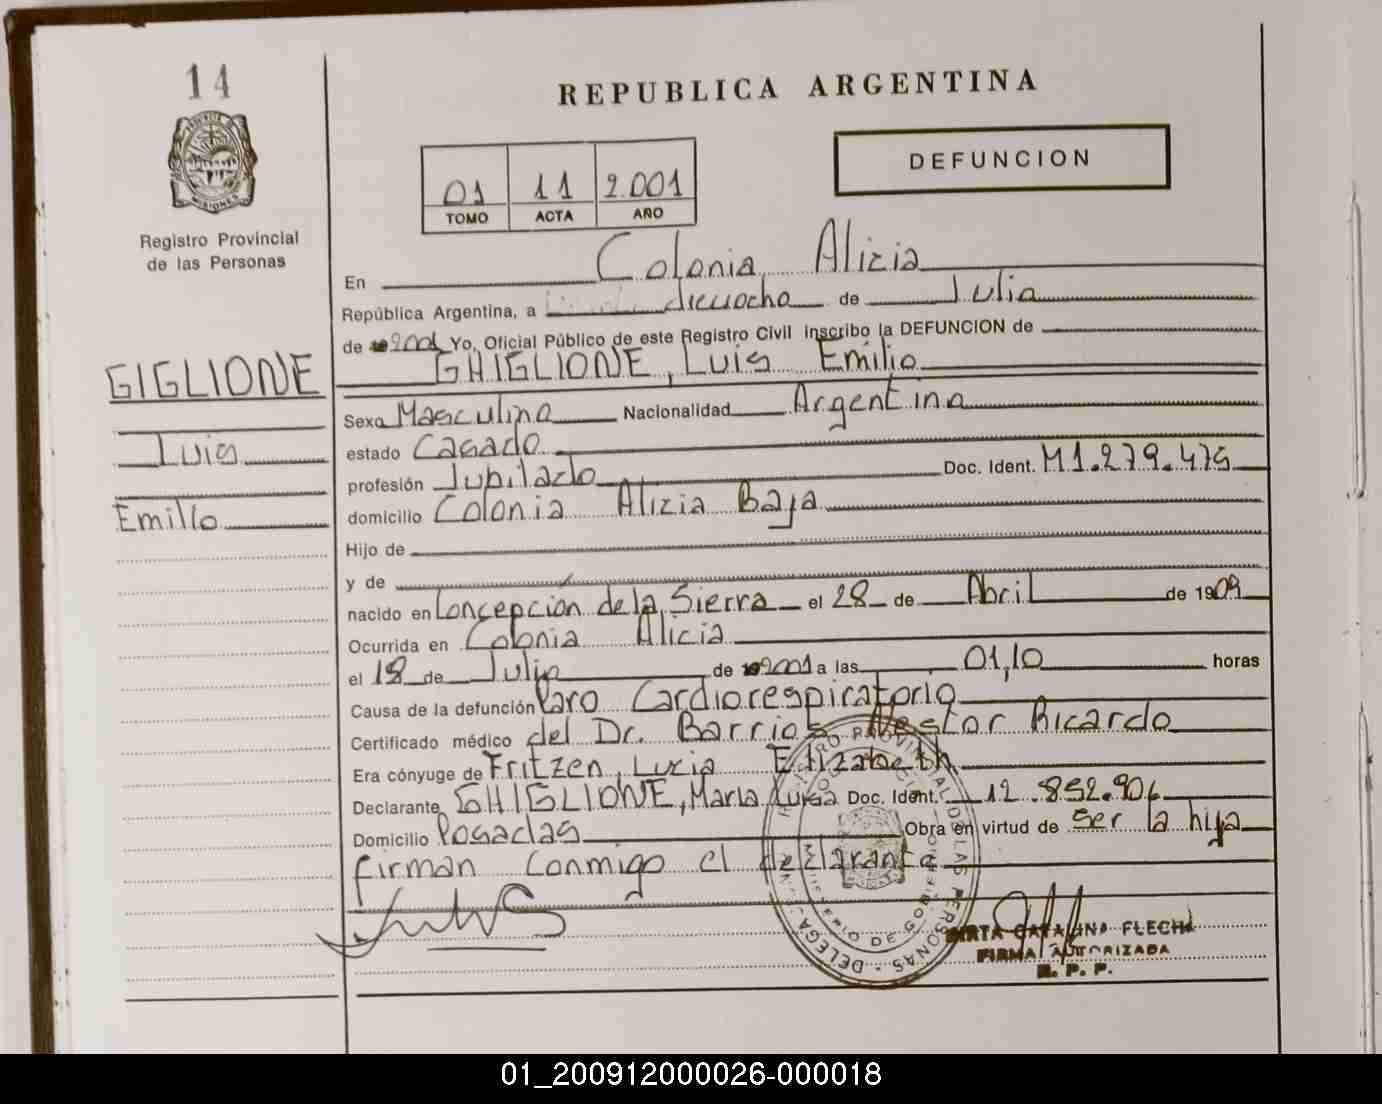 14
REPUBLICA ARGENTINA
01 11 2.001
TOMO ACTA AÑO
DEFUNCION
Registro Provincial
de las Personas
En Colonia Alicia
República Argentina, a dieciocho de Julio
de 2001 Yo, Oficial Público de este Registro Civil inscribo la DEFUNCION de
GHIGLIONE, Luis Emilio
GIGLIONE
Luis
Emilio
Sexo Masculino Nacionalidad Argentina
estado Casado
profesión Jubilado Doc. Ident. M1.279.475
domicilio Colonia Alizia Baja
Hijo de
y de
nacido en Concepción de la Sierra el 28 de Abril de 1909
Ocurrida en Colonia Alicia
el 18 de Julio de 2001 a las 01,10 horas
Causa de la defunción Paro Cardiorespiratorio
Certificado médico del Dr. Barrios Nestor Ricardo
Era cónyuge de Fritzen, Lucia Elizabeth
Declarante GHIGLIONE, Maria Luisa Doc. Ident. 12.852.906
Domicilio Posadas Obra en virtud de ser la hija
firman conmigo el declarante
REGISTRO PROVINCIAL DE LAS PERSONAS
MINISTERIO DE GOBIERNO
MIRTA CATALINA FLECHA
FIRMA AUTORIZADA
R. P. P.
01_200912000026-000018